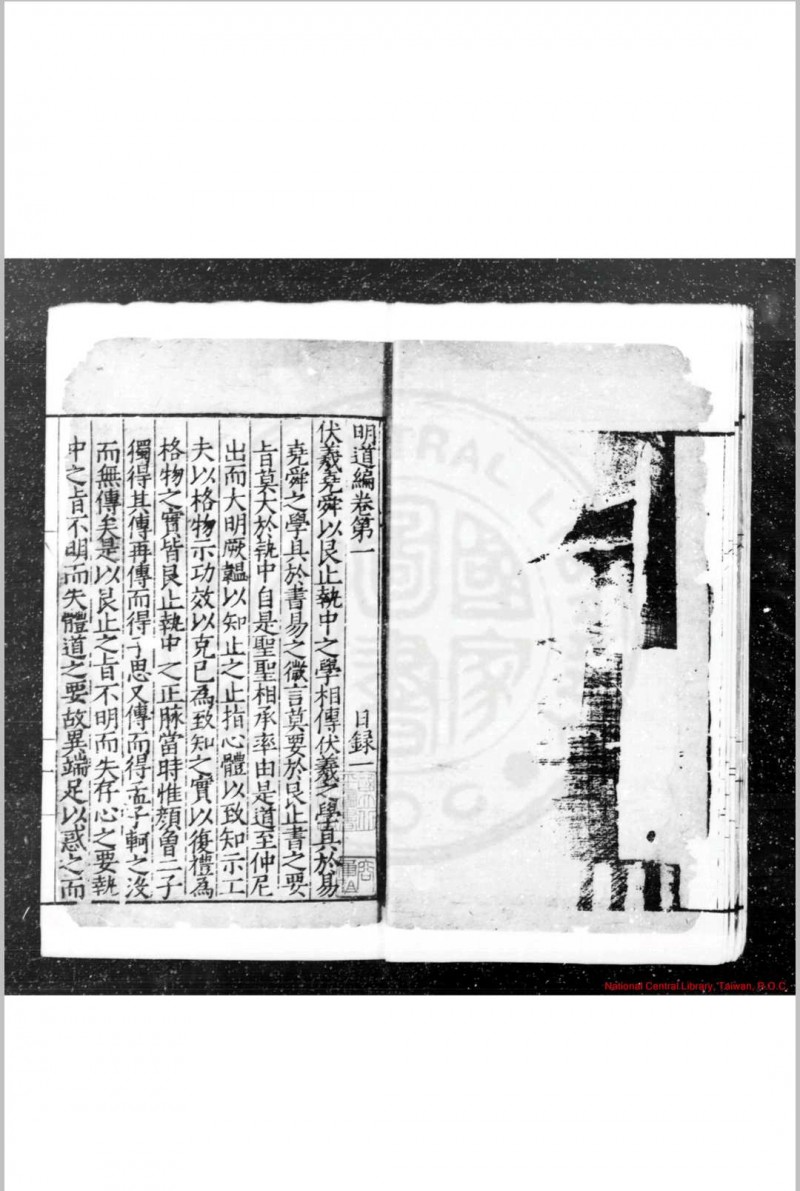 明道編卷第一 日錄一
伏羲堯舜以艮止執中之學相傳伏羲之學具於易
堯舜之學具於書易之微言莫要於艮止書之要
旨莫大於執中自是聖聖相承率由是道至仲尼
出而大明厥韞以知止之止指心體以致知示工
夫以格物示功效以克己為致知之實以復禮為
格物之實皆艮止執中之正脉當時惟顏曾二子
獨得其傳再傳而得子思又傳而得孟子軻之沒
而無傳矣是以艮止之旨不明而失存心之要執
中之旨不明而失體道之要故異端足以惑之而
National Central Library, Taiwan, R.O.C